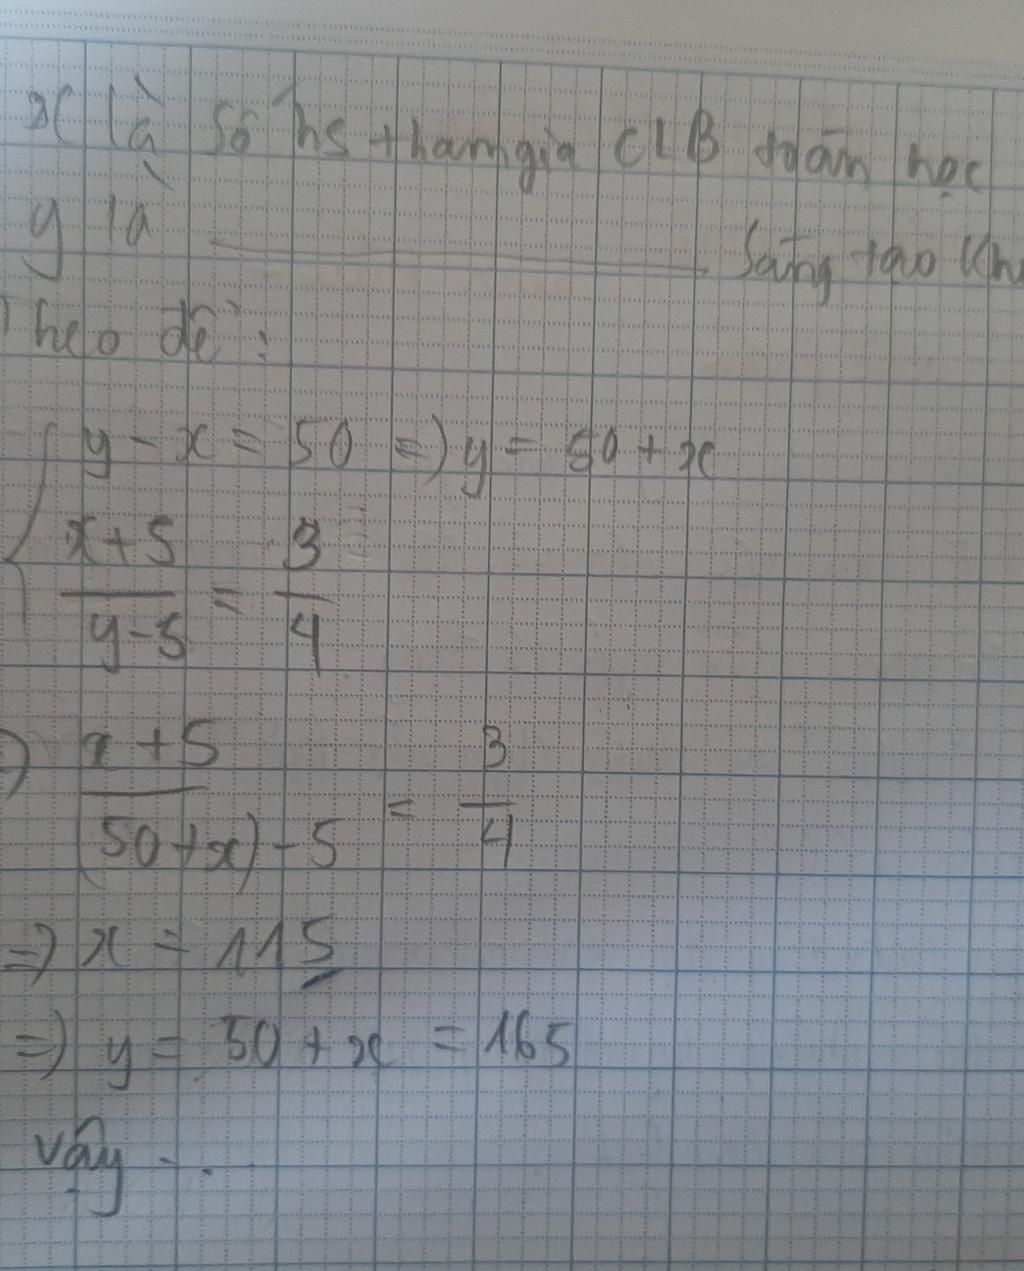 x là số hs tham gia CLB toán học
y là ____________ sáng tạo Kh
Theo đề :
y - x = 50 => y = 50 + x
x+5 / y-5 = 3 / 4
=> x+5 / (50+x)-5 = 3 / 4
=> x = 115
=> y = 50 + x = 165
vậy - .